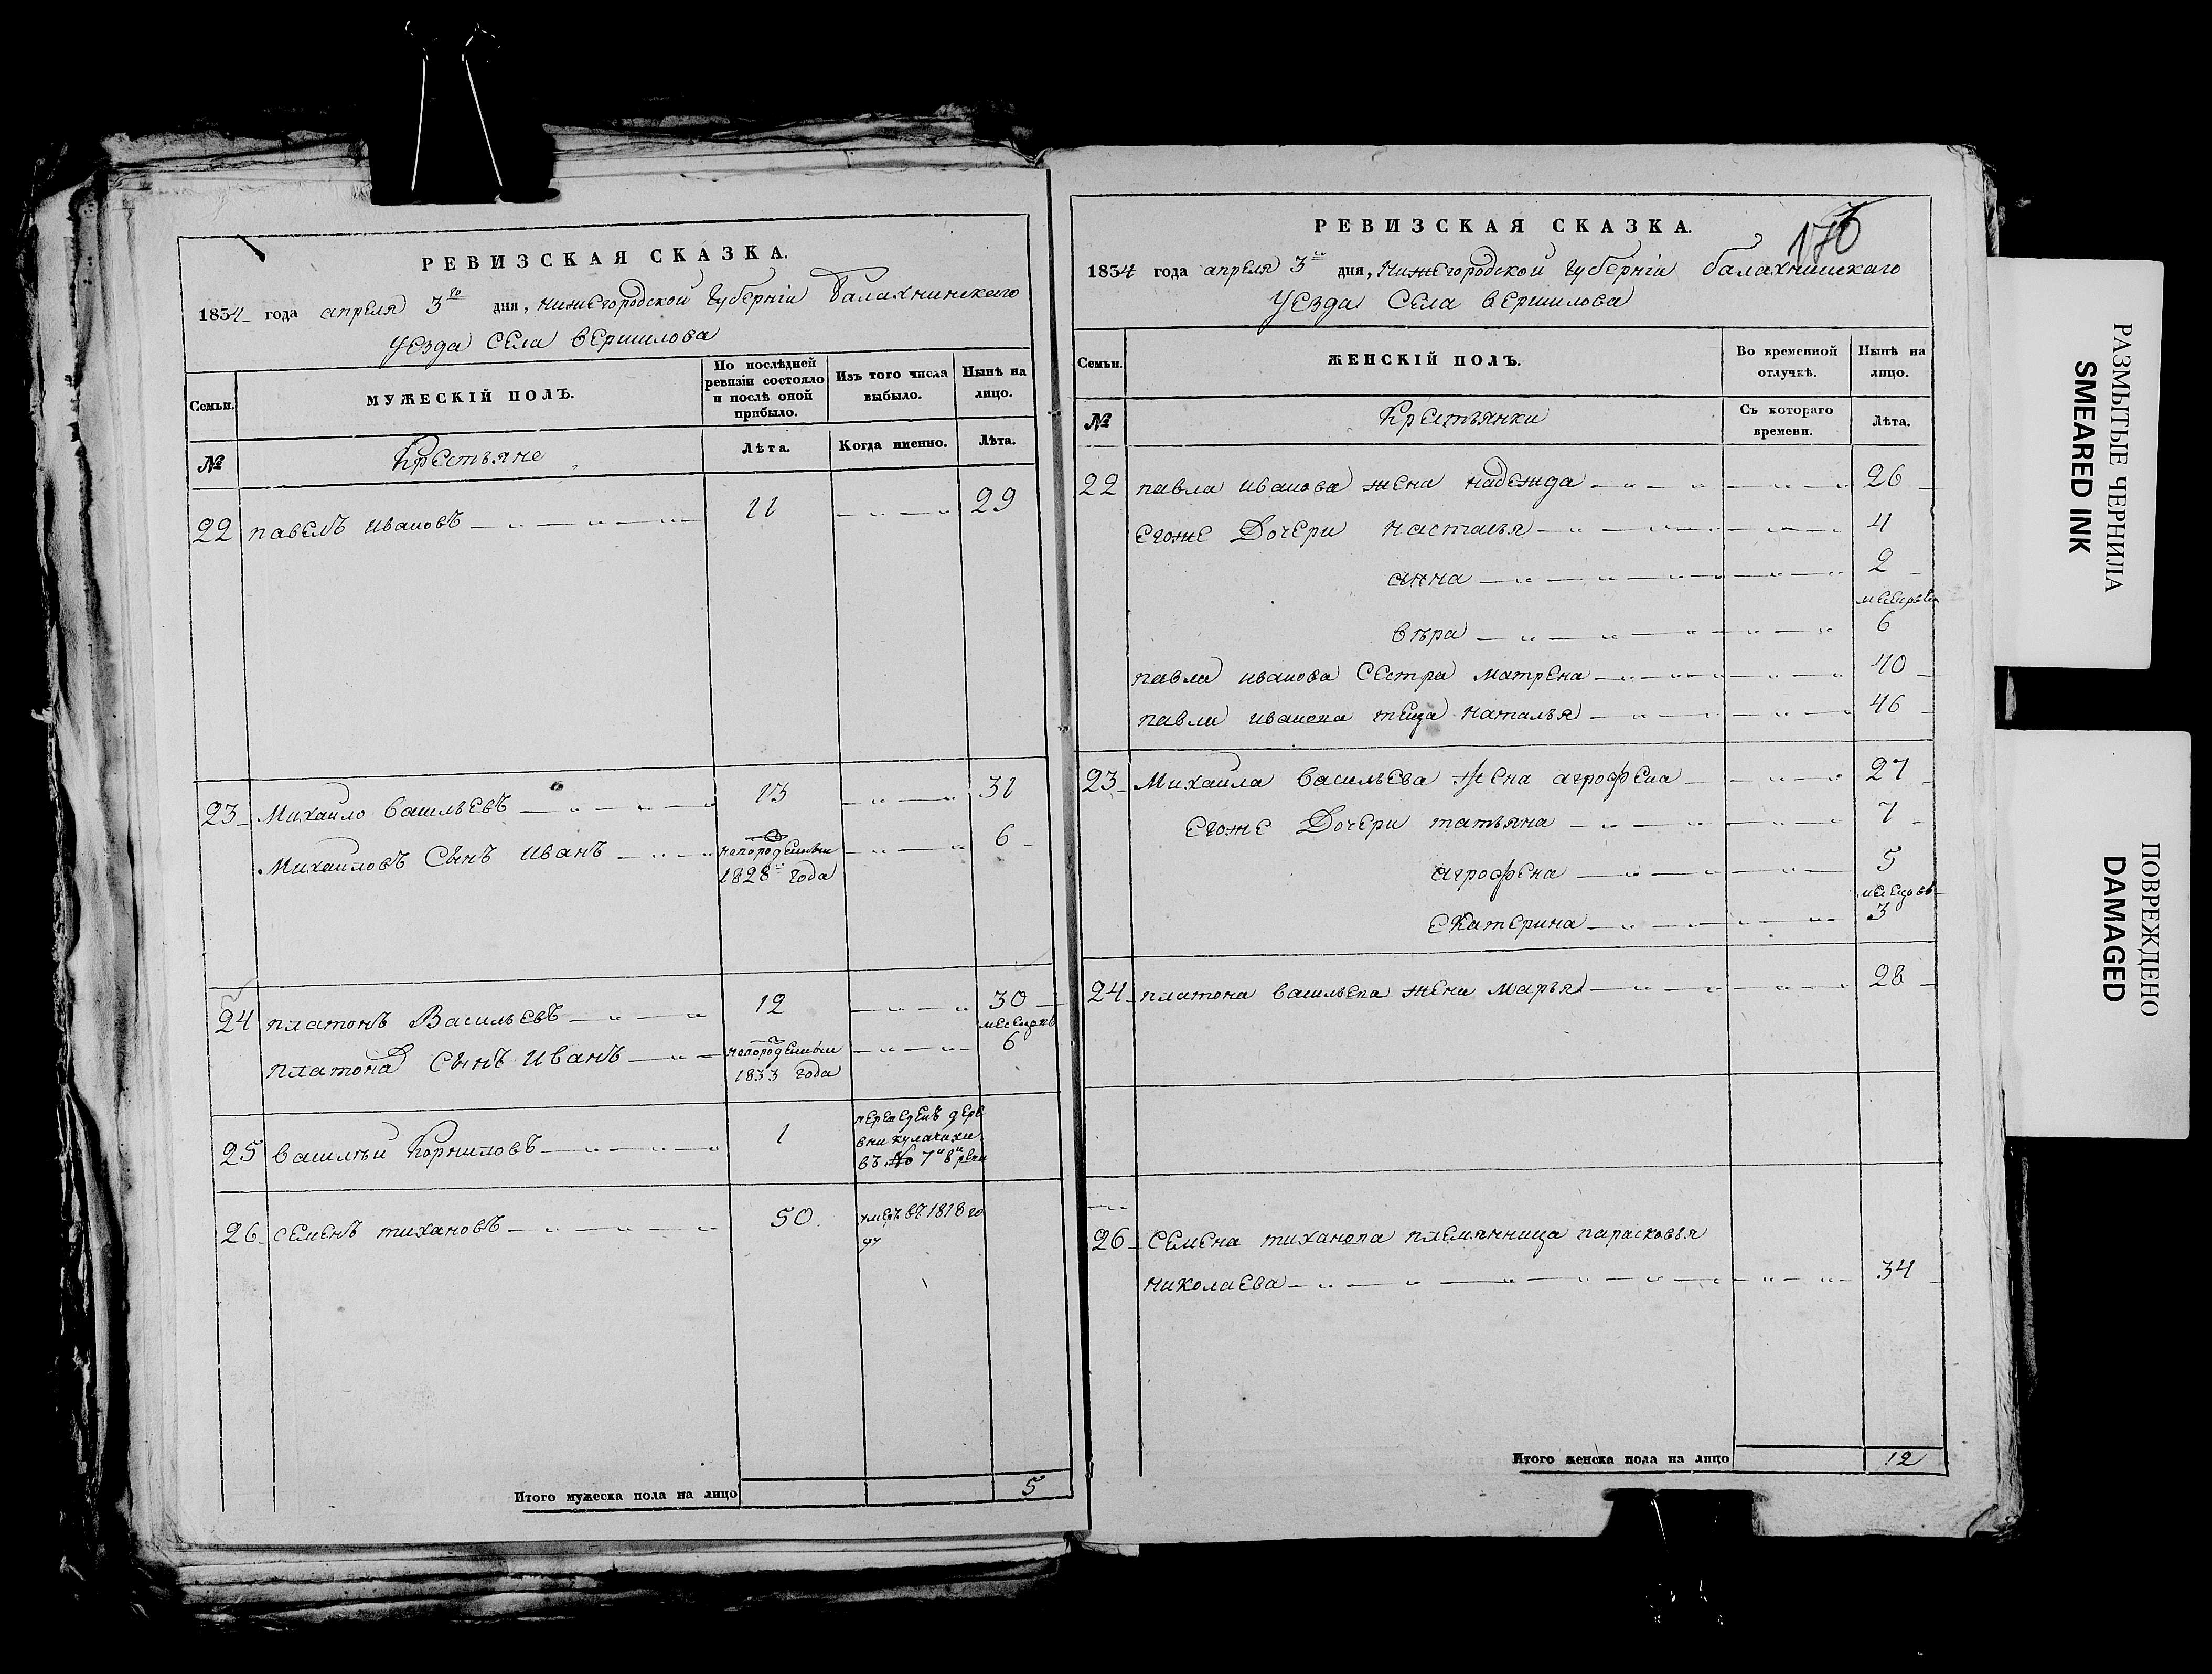 РЕВИЗСКАЯ СКАЗКА.
1834 года апреля 3го дня, нижегородской губерніи Балахнинскаго
уезда села вершилова
Семьи. МУЖЕСКІЙ ПОЛЪ. По послѣдней ревизіи состояло и послѣ оной прибыло. Изъ того числа выбыло. Нынѣ на лицо.
№ Крестьяне Лѣта. Когда именно. Лѣта.
22 павелъ ивановъ 11 29
23 Михаило васильевъ 13 31
Михаиловъ сынъ иванъ 6
1828 года
24 платонъ Васильевъ 12 30
месецовъ
платона сынъ иванъ 6
1833 года
25 василѣи Корниловъ 1 дере
вни кулачихи
въ № 7й 8й
26 семенъ тихановъ 50. умеръ въ 1818 го
ду
Итого мужеска пола на лицо 5
РЕВИЗСКАЯ СКАЗКА.
1834 года апреля 3го дня, Нижегородской губерніи балахнинскаго
уезда села вершилова
Семьи. ЖЕНСКІЙ ПОЛЪ. Во временной отлучкѣ. Нынѣ на лицо.
№ Крестьянки Съ котораго времени. Лѣта.
22 павла иванова жена надежда 26
егоже Дочери настасья 4
анна 2
месецовъ
вѣра 6
павла иванова сестра матрена 40
павла иванова теща наталья 46
23 Михаила васильева жена агрофена 27
егоже Дочери татьяна 7
агрофена 5
месецовъ
екатерина 3
24 платона васильева жена марья 28
26 семена тиханова племянница парасковья
николаева 34
Итого женска пола на лицо 12
РАЗМЫТЫЕ ЧЕРНИЛА
SMEARED INK
ПОВРЕЖДЕНО
DAMAGED